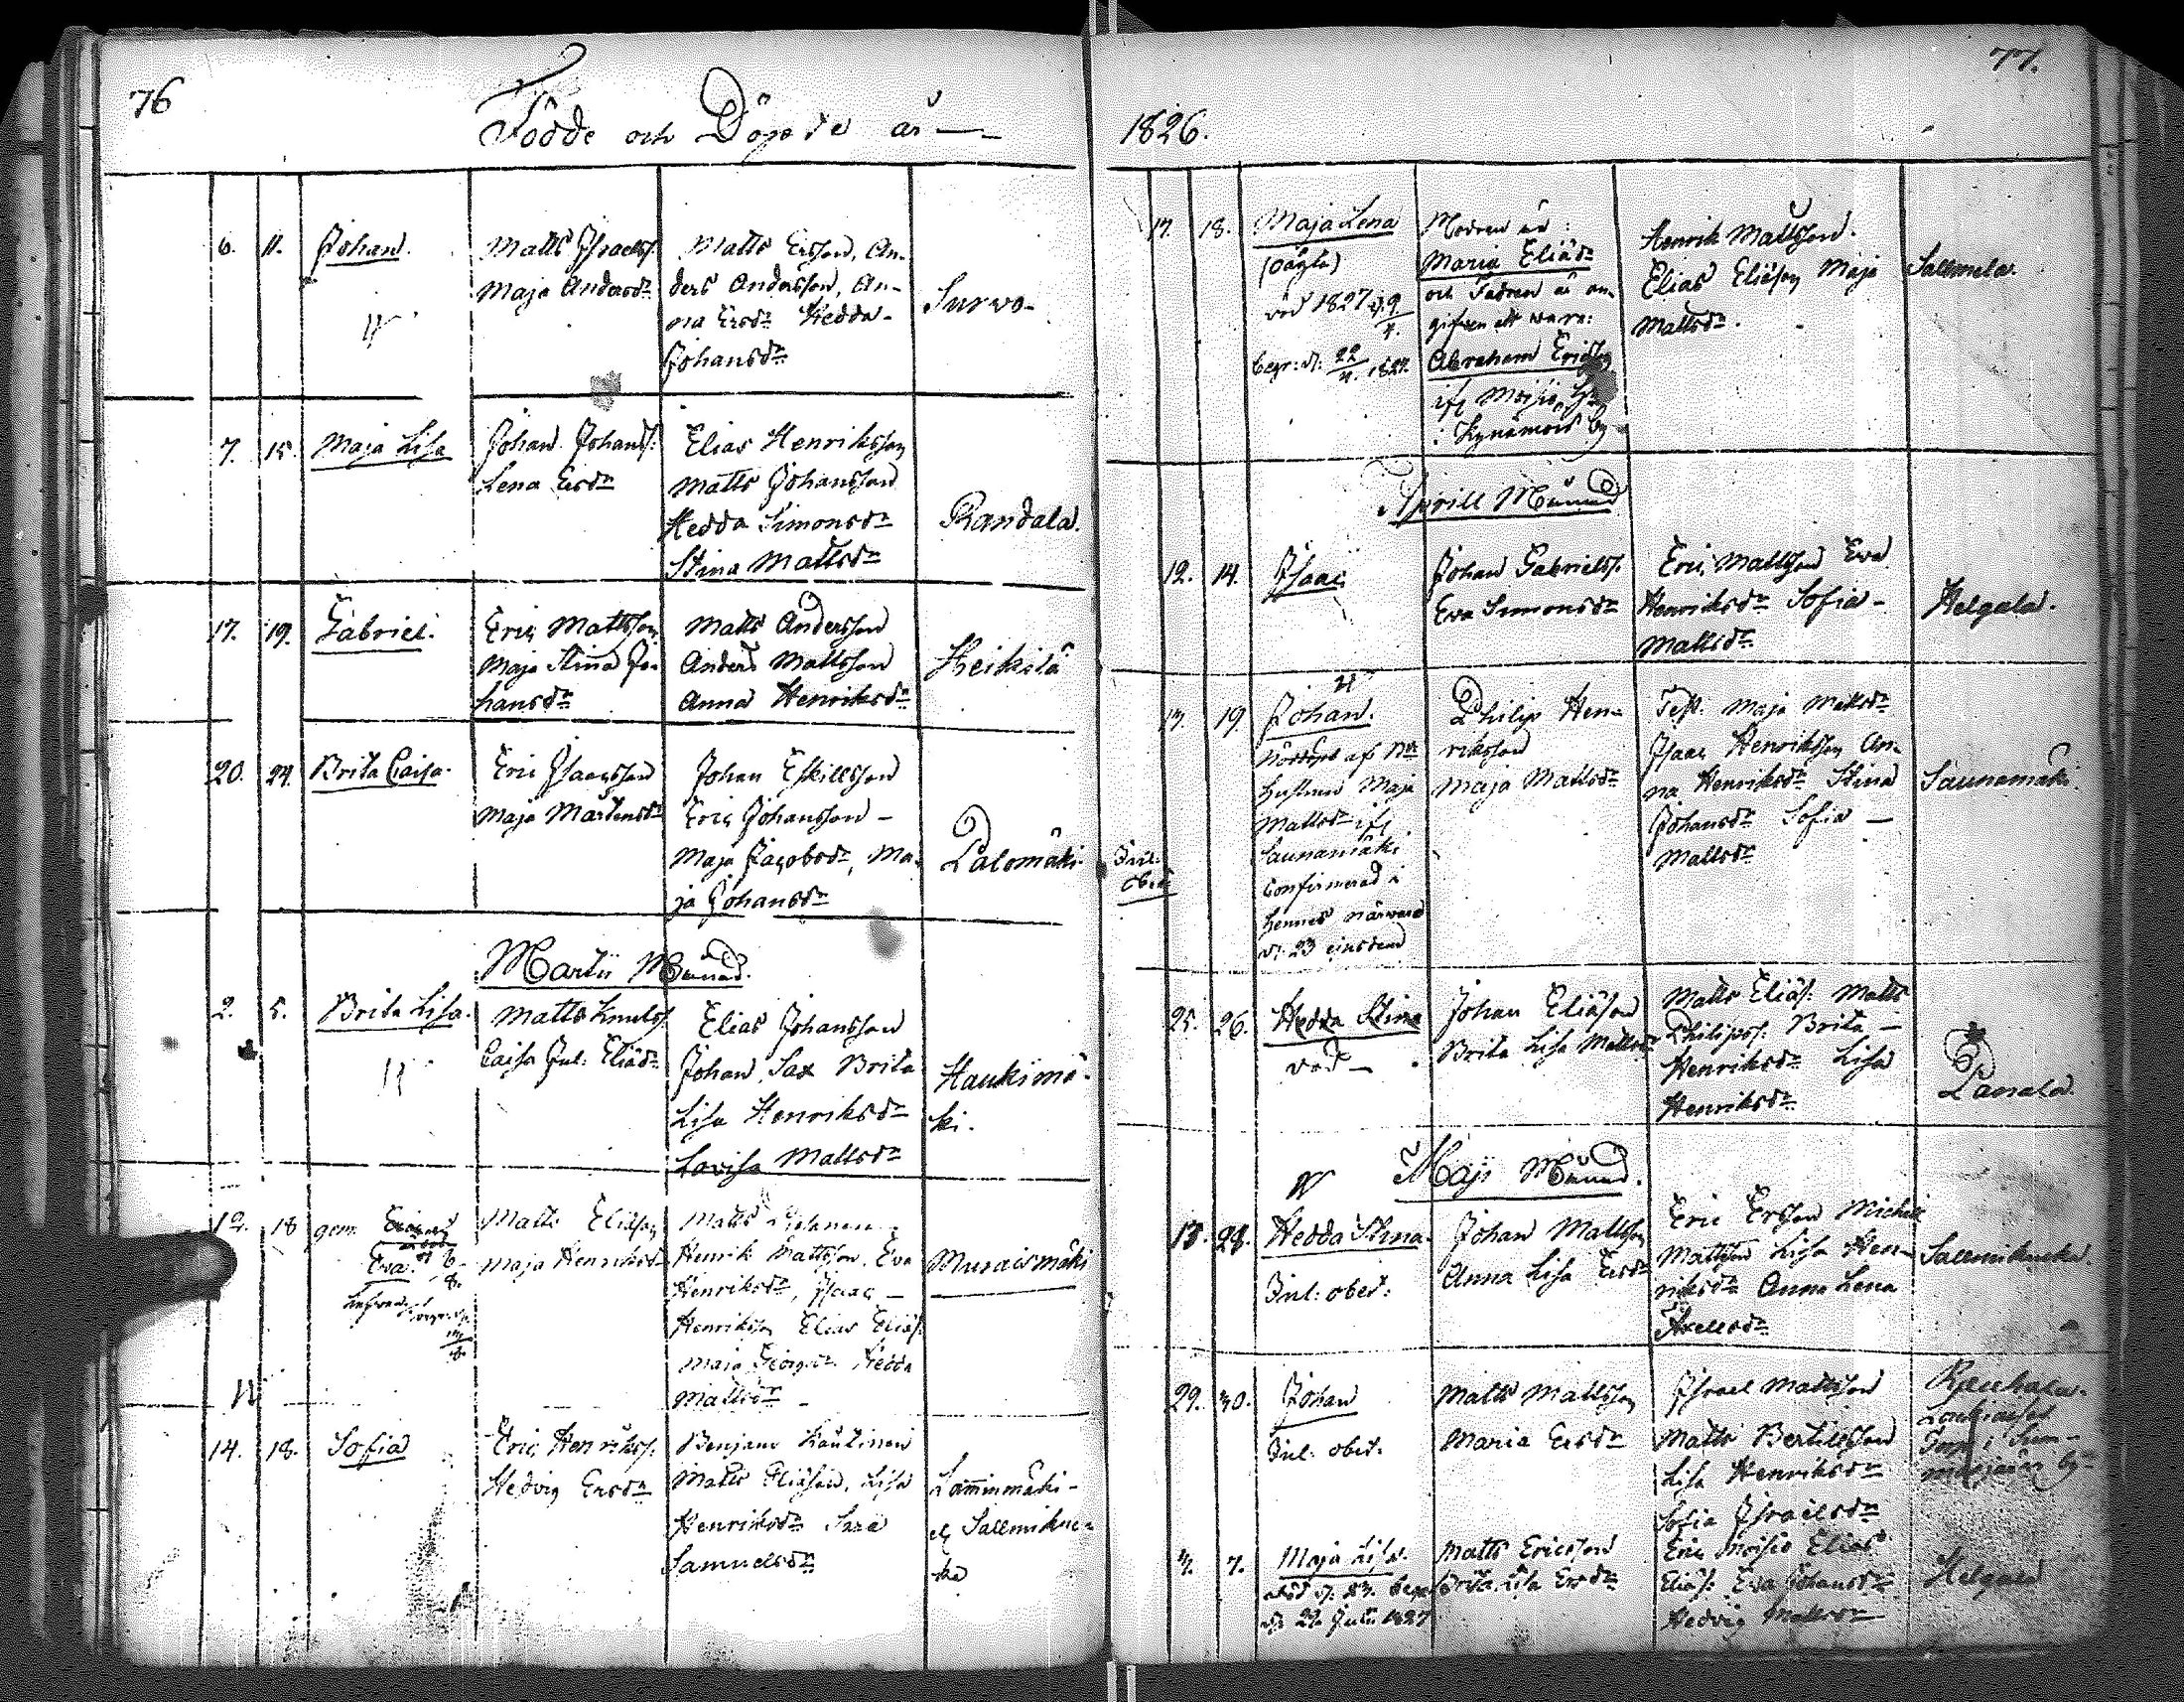 76
Födde och Döpte år
6. 11. Johan.
Matts Israelss.
Maja Andersdr
Matts Ersson, An-
ders Andersson, An-
na Ersdr Hedda
Johansdr
Survo
7. 15. Maja Lisa
Johan Johanss.
Lena Ersdr
Elias Henriksson
Matts Johansson
Hedda Simonsdr
Stina Mattsdr
Randala
17. 19. Gabriel.
Eric Mattsson
Maja Stina Jo-
hansdr
Matts Andersson
Anders Mattsson
Anna Henriksdr
Heikilä
20. 24. Brita Caisa.
Eric Isaacsson
Maja Mårtensdr
Johan Eskillsson
Eric Johansson
Maja Jacobsdr, Ma-
ja Johansdr
Palomäki
Martii Månad.
2. 5. Brita Lisa.
Matts Knutss.
Caisa Jul: Eliædr
Elias Johansson
Johan Sax Brita
Lisa Henriksdr
Lovisa Mattsdr
Haukimä-
ki.
12. 18 gem.
Eva.
Matts Eliæson
Maja Henriksdr
Matts
Henrik Mattsson, Eva
Henriksdr, Isaac
Henriksson Elias Eliæs.
Maja Georgsdr Hedda
Mattsdr
Muraismäki
14. 18. Sofia
Eric Henrikss.
Hedvig Ersdr
Benjam Kautinen
Matts Eliæson, Lisa
Henriksdr Sara
Samuelsdr
Lamminmäki
af Sallmikue-
ka
77.
1826.
17. 18. Maja Lena
(oägta)
död 1827 d. 9/4.
begr: d. 22/4. 1827.
Modren är:
Maria Eliædr
och Fadren är an-
gifven att wara:
Abraham Ericsson
ifr Moisio
i Kynämois by
Henrik Mattsson.
Elias Eliæson Maja
Mattsdr.
Sallmela.
Aprill Månad
12. 14. Isaac
Johan Gabrielss.
Eva Simonsdr
Eric Mattsson Eva
Henriksdr Sofia
Mattsdr
Helgala.
13. 19. Johan.
Nöddöpt af
hustrun Maja
Mattsdr ifr
Saunamäki
Confirmerad i
hennes närwaro
d. 23 ejusdem
Philip Hen-
riksson
Maja Mattsdr
Test: Maja Mattsdr
Isaac Henriksson An-
na Henriksdr Stina
Johansdr Sofia
Mattsdr
Saunamäki.
25. 26. Hedda Stina
död
Johan Eliæson
Brita Lisa Mattsdr
Matts Eliæs: Matts
Philipss: Brita
Henriksdr Lisa
Henriksdr
Panala
Maji Månad.
13. 28. Hedda Stina.
Jul: obet.
Johan Mattsson
Anna Lisa Ersdr
Eric Ersson Michell
Mattsson Lisa Hen-
riksdr Anna Lena
Axellsdr
Sallmikueka.
29. 30. Johan
Jul: obet.
Matts Mattsson
Maria Ersdr
Israel Mattsson
Matts Bertillsson
Lisa Henriksdr
Sofia Israelsdr
3. 7. Maja Lisa.
d. 29. Julii 1827
Matts Ericsson
Brita Lisa Ersdr
Eric Moisio Elias
Eliæs: Eva Johansdr
Hedvig Mattsdr
Helgala